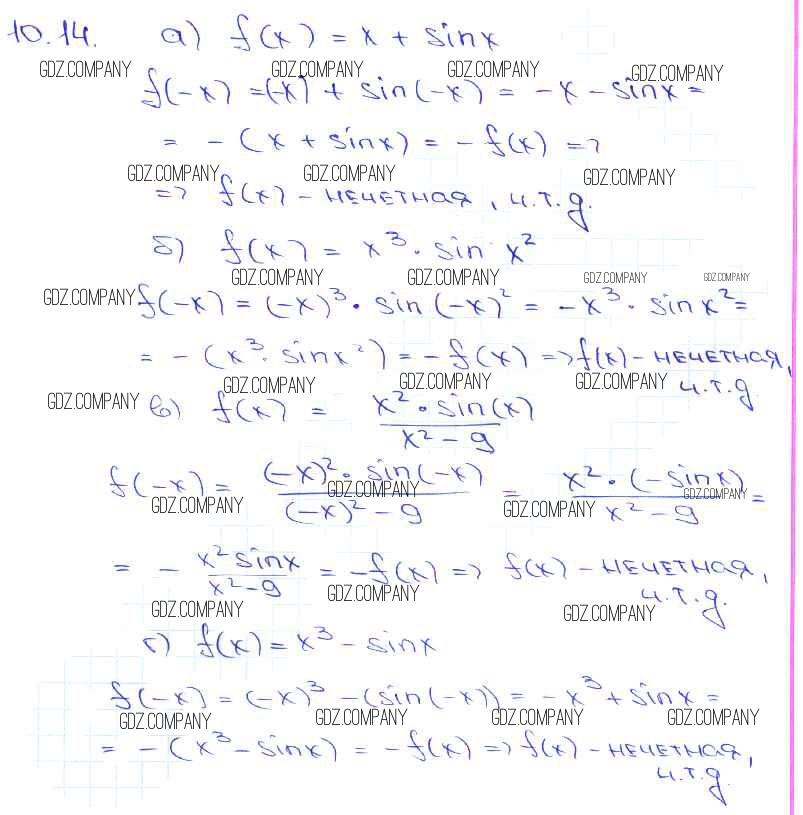 10.14. а) f(x) = x + sinx
GDZ.COMPANY GDZ.COMPANY GDZ.COMPANY GDZ.COMPANY
f(-x) =(-x) + sin(-x) = -x - sinx =
= - (x + sinx) = - f(x) =>
GDZ.COMPANY GDZ.COMPANY GDZ.COMPANY
=> f(x) - нечетная, ч.т.д.
б) f(x) = x³ · sin x²
GDZ.COMPANY GDZ.COMPANY GDZ.COMPANY GDZ.COMPANY
GDZ.COMPANY f(-x) = (-x)³ · sin(-x)² = -x³ · sinx² =
= - (x³ · sinx²) = - f(x) => f(x) - нечетная,
ч.т.д.
GDZ.COMPANY GDZ.COMPANY GDZ.COMPANY
GDZ.COMPANY в) f(x) = x² · sin(x) / x² - 9
f(-x) = (-x)² · sin(-x) / (-x)² - 9 = x² · (-sinx) / x² - 9 =
GDZ.COMPANY GDZ.COMPANY GDZ.COMPANY GDZ.COMPANY
= - x² sinx / x² - 9 = -f(x) => f(x) - нечетная,
ч.т.д.
GDZ.COMPANY GDZ.COMPANY GDZ.COMPANY
г) f(x) = x³ - sinx
f(-x) = (-x)³ - (sin(-x)) = -x³ + sinx =
GDZ.COMPANY GDZ.COMPANY GDZ.COMPANY GDZ.COMPANY
= - (x³ - sinx) = - f(x) => f(x) - нечетная,
ч.т.д.